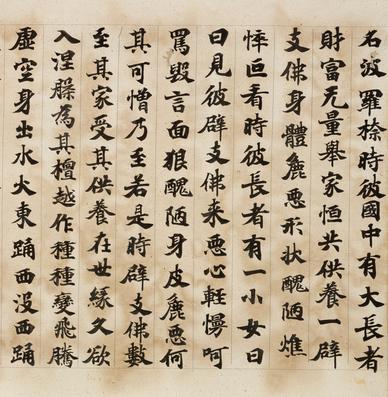 名波羅捺時彼國中有大長者
財富无量舉家恒共供養一辟
支佛身體麁惡形狀醜陋燋
悴叵看時彼長者有一小女日
日見彼辟支佛来惡心輕慢呵
罵毀言面狠醜陋身皮麁惡何
其可憎乃至若是時辟支佛數
至其家受其供養在世緣久欲
入涅槃為其檀越作種種變飛騰
虛空身出水火東踊西没西踊